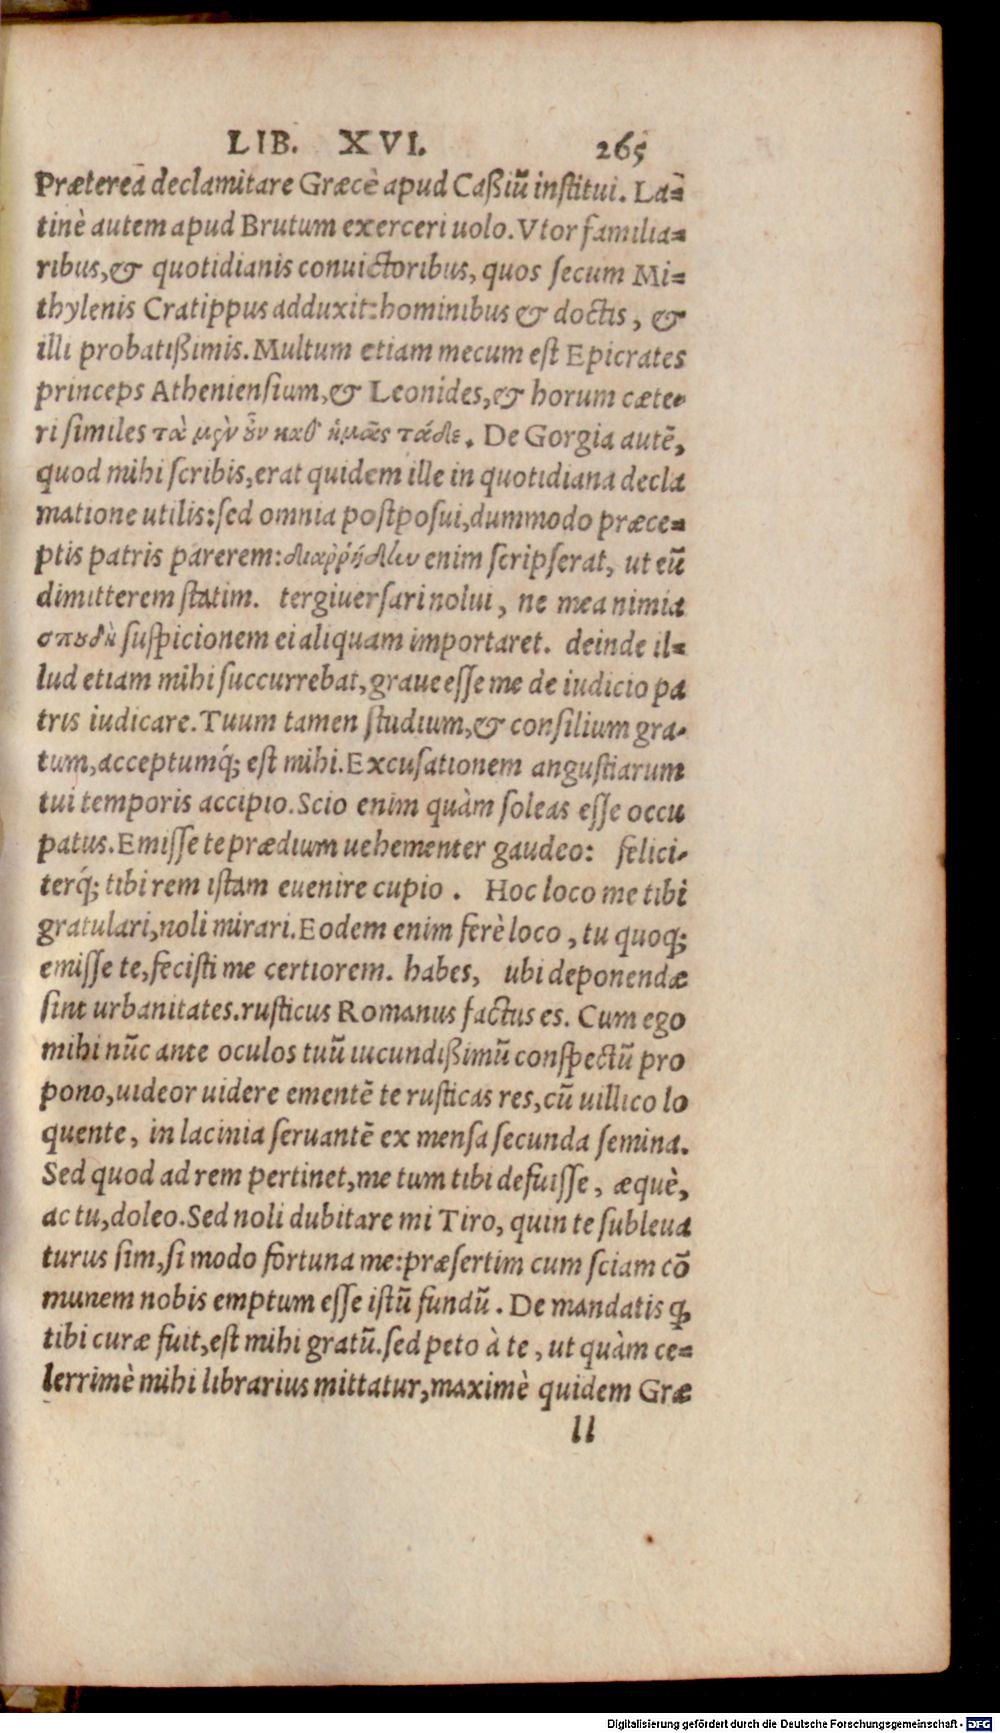 LIB. XVI. 265
Prætereà declamitare Græcè apud Caßiũ institui. La=
tinè autem apud Brutum exerceri uolo. Vtor familia=
ribus, & quotidianis conuictoribus, quos secum Mi=
thylenis Cratippus adduxit: hominibus & doctis, &
illi probatißimis. Multum etiam mecum est Epicrates
princeps Atheniensium, & Leonides, & horum cæte=
ri similes τὰ μὲν ȣ̃ν καθ' ἡμᾶς τάδε. De Gorgia autẽ,
quod mihi scribis, erat quidem ille in quotidiana decla
matione utilis: sed omnia postposui, dummodo præce=
ptis patris parerem: διαῤῥήδην enim scripserat, ut eũ
dimitterem statim. tergiuersari nolui, ne mea nimia
σπȣδὴ suspicionem ei aliquam importaret. deinde il=
lud etiam mihi succurrebat, graue esse me de iudicio pa
tris iudicare. Tuum tamen studium, & consilium gra=
tum, acceptumq́; est mihi. Excusationem angustiarum
tui temporis accipio. Scio enim quàm soleas esse occu
patus. Emisse te prædium uehementer gaudeo: felici=
terq́; tibi rem istam euenire cupio. Hoc loco me tibi
gratulari, noli mirari. Eodem enim ferè loco, tu quoq;
emisse te, fecisti me certiorem. habes, ubi deponendæ
sint urbanitates. rusticus Romanus factus es. Cum ego
mihi nũc ante oculos tuũ iucundißimũ conspectũ pro
pono, uideor uidere ementẽ te rusticas res, cũ uillico lo
quente, in lacinia seruantẽ ex mensa secunda semina.
Sed quod ad rem pertinet, me tum tibi defuisse, æquè,
ac tu, doleo. Sed noli dubitare mi Tiro, quin te subleua
turus sim, si modo fortuna me: præsertim cum sciam cõ
munem nobis emptum esse istũ fundũ. De mandatis ꝙ
tibi curæ fuit, est mihi gratũ. sed peto à te, ut quàm ce=
lerrimè mihi librarius mittatur, maximè quidem Græ
ll
Digitalisierung gefördert durch die Deutsche Forschungsgemeinschaft - DFG